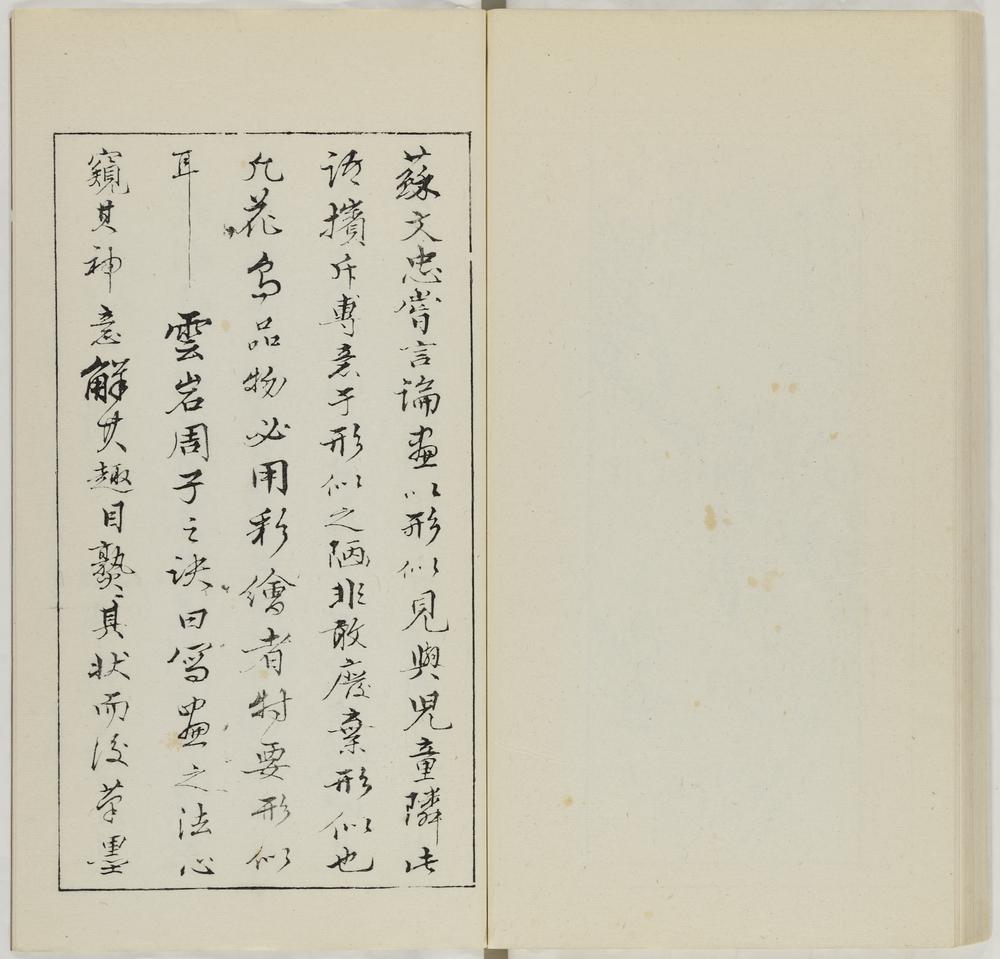 蘇文忠嘗言論画以形似見與児童隣此
語擯斥專意于形似之陋非敢廢棄形似也
凡花鳥品物必用彩繪者特要形似
耳 雲岩周子之訣曰写画之法心
窺其神意解其趣目熟其状而後筆墨